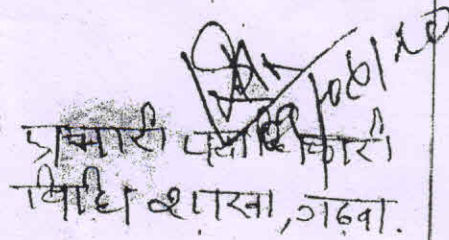 प्रभारी पदाधिकारी
विधि शाखा, गढ़वा.